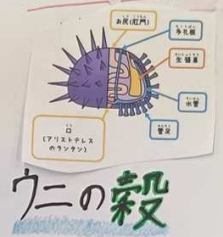 お尻(肛門)
多孔板
生殖巣
水管
管足
口
(アリストテレス
のランタン)
ウニの穀